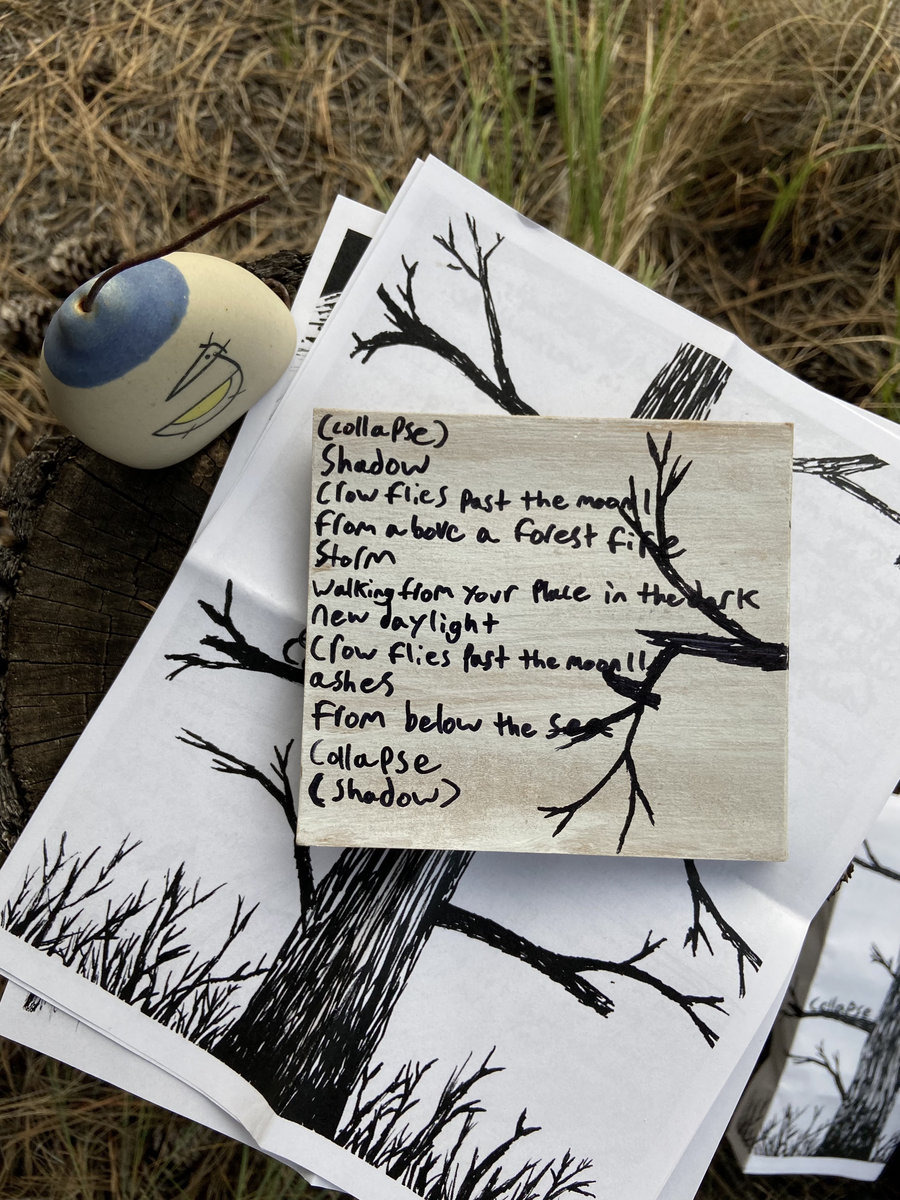 (collapse)
Shadow
Crow flies past the moon II
From above a forest fire
Storm
walking from your place in the dark
new daylight
Crow flies past the moon II
ashes
From below the sea
Collapse
(shadow)
collapse